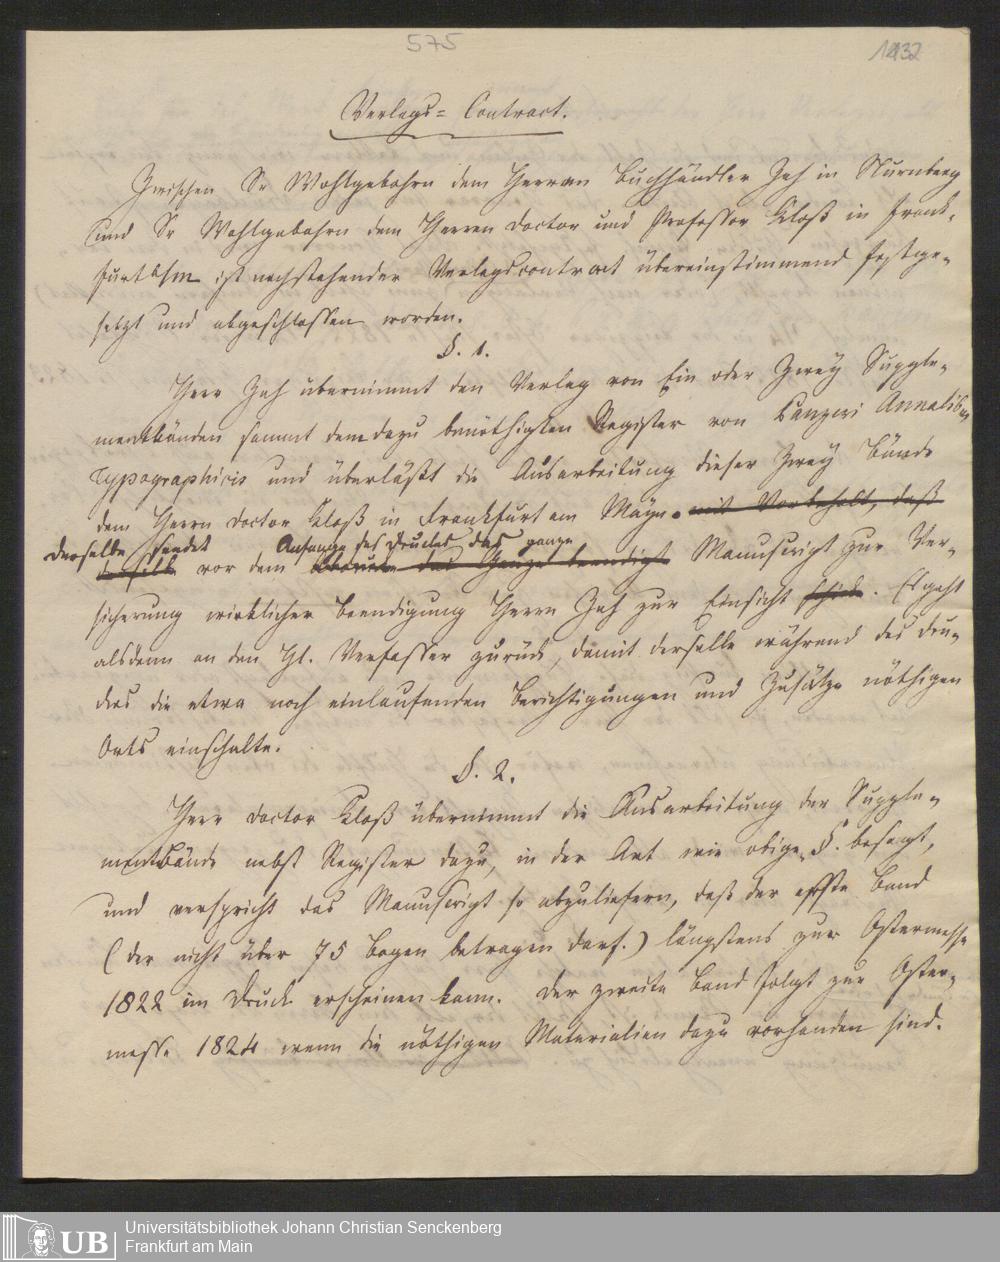 575
1432
Verlags= Contract.
Zwischen Sr Wohlgebohrn dem Herren Buchhändler Zeh in Nürnberg
und Sr Wohlgebohrn dem Herren Doctor und Professor Kloß in Frank-
furt a/m ist nachstehender Verlagscontract übereinstimmend festge-
setzt und abgeschlossen worden.
§. 1.
Herr Zeh übernimmt den Verlag von Ein oder Zwey Supple-
mentbänden sammt dem dazu benöthigten Register von Panzeri Annalibus
typographicis und überläßt die Ausarbeitung dieser Zwey Bände
dem Herrn Doctor Kloß in Frankfurt am Mayn. mit Vorbehalt, daß
derselbe sendet Anfange des Druckes das ganze
vor dem das Ganze beendigt Manuscript zur Ver-
sicherung wirklicher Beendigung Herrn Zeh zur Einsicht schickt. Es geht
alsdann an den H. Verfasser zurück, damit derselbe während des Dru-
ckes die etwa noch einlaufenden Berichtigungen und Zusätze nöthigen
Orts einschalte.
§. 2.
Herr Doctor Kloß übernimmt die Ausarbeitung der Supple-
mentbände nebst Register dazu, in der Art wie obige §. besagt,
und verspricht das Manuscript so abzuliefern, daß der erste Band
(der nicht über 75 Bogen betragen darf.) längstens zur Ostermesse
1822 im Druck erscheinen kann. Der zweite Band folgt zur Oster-
messe 1824 wenn die nöthigen Materialien dazu vorhanden sind.
UB
Universitätsbibliothek Johann Christian Senckenberg
Frankfurt am Main